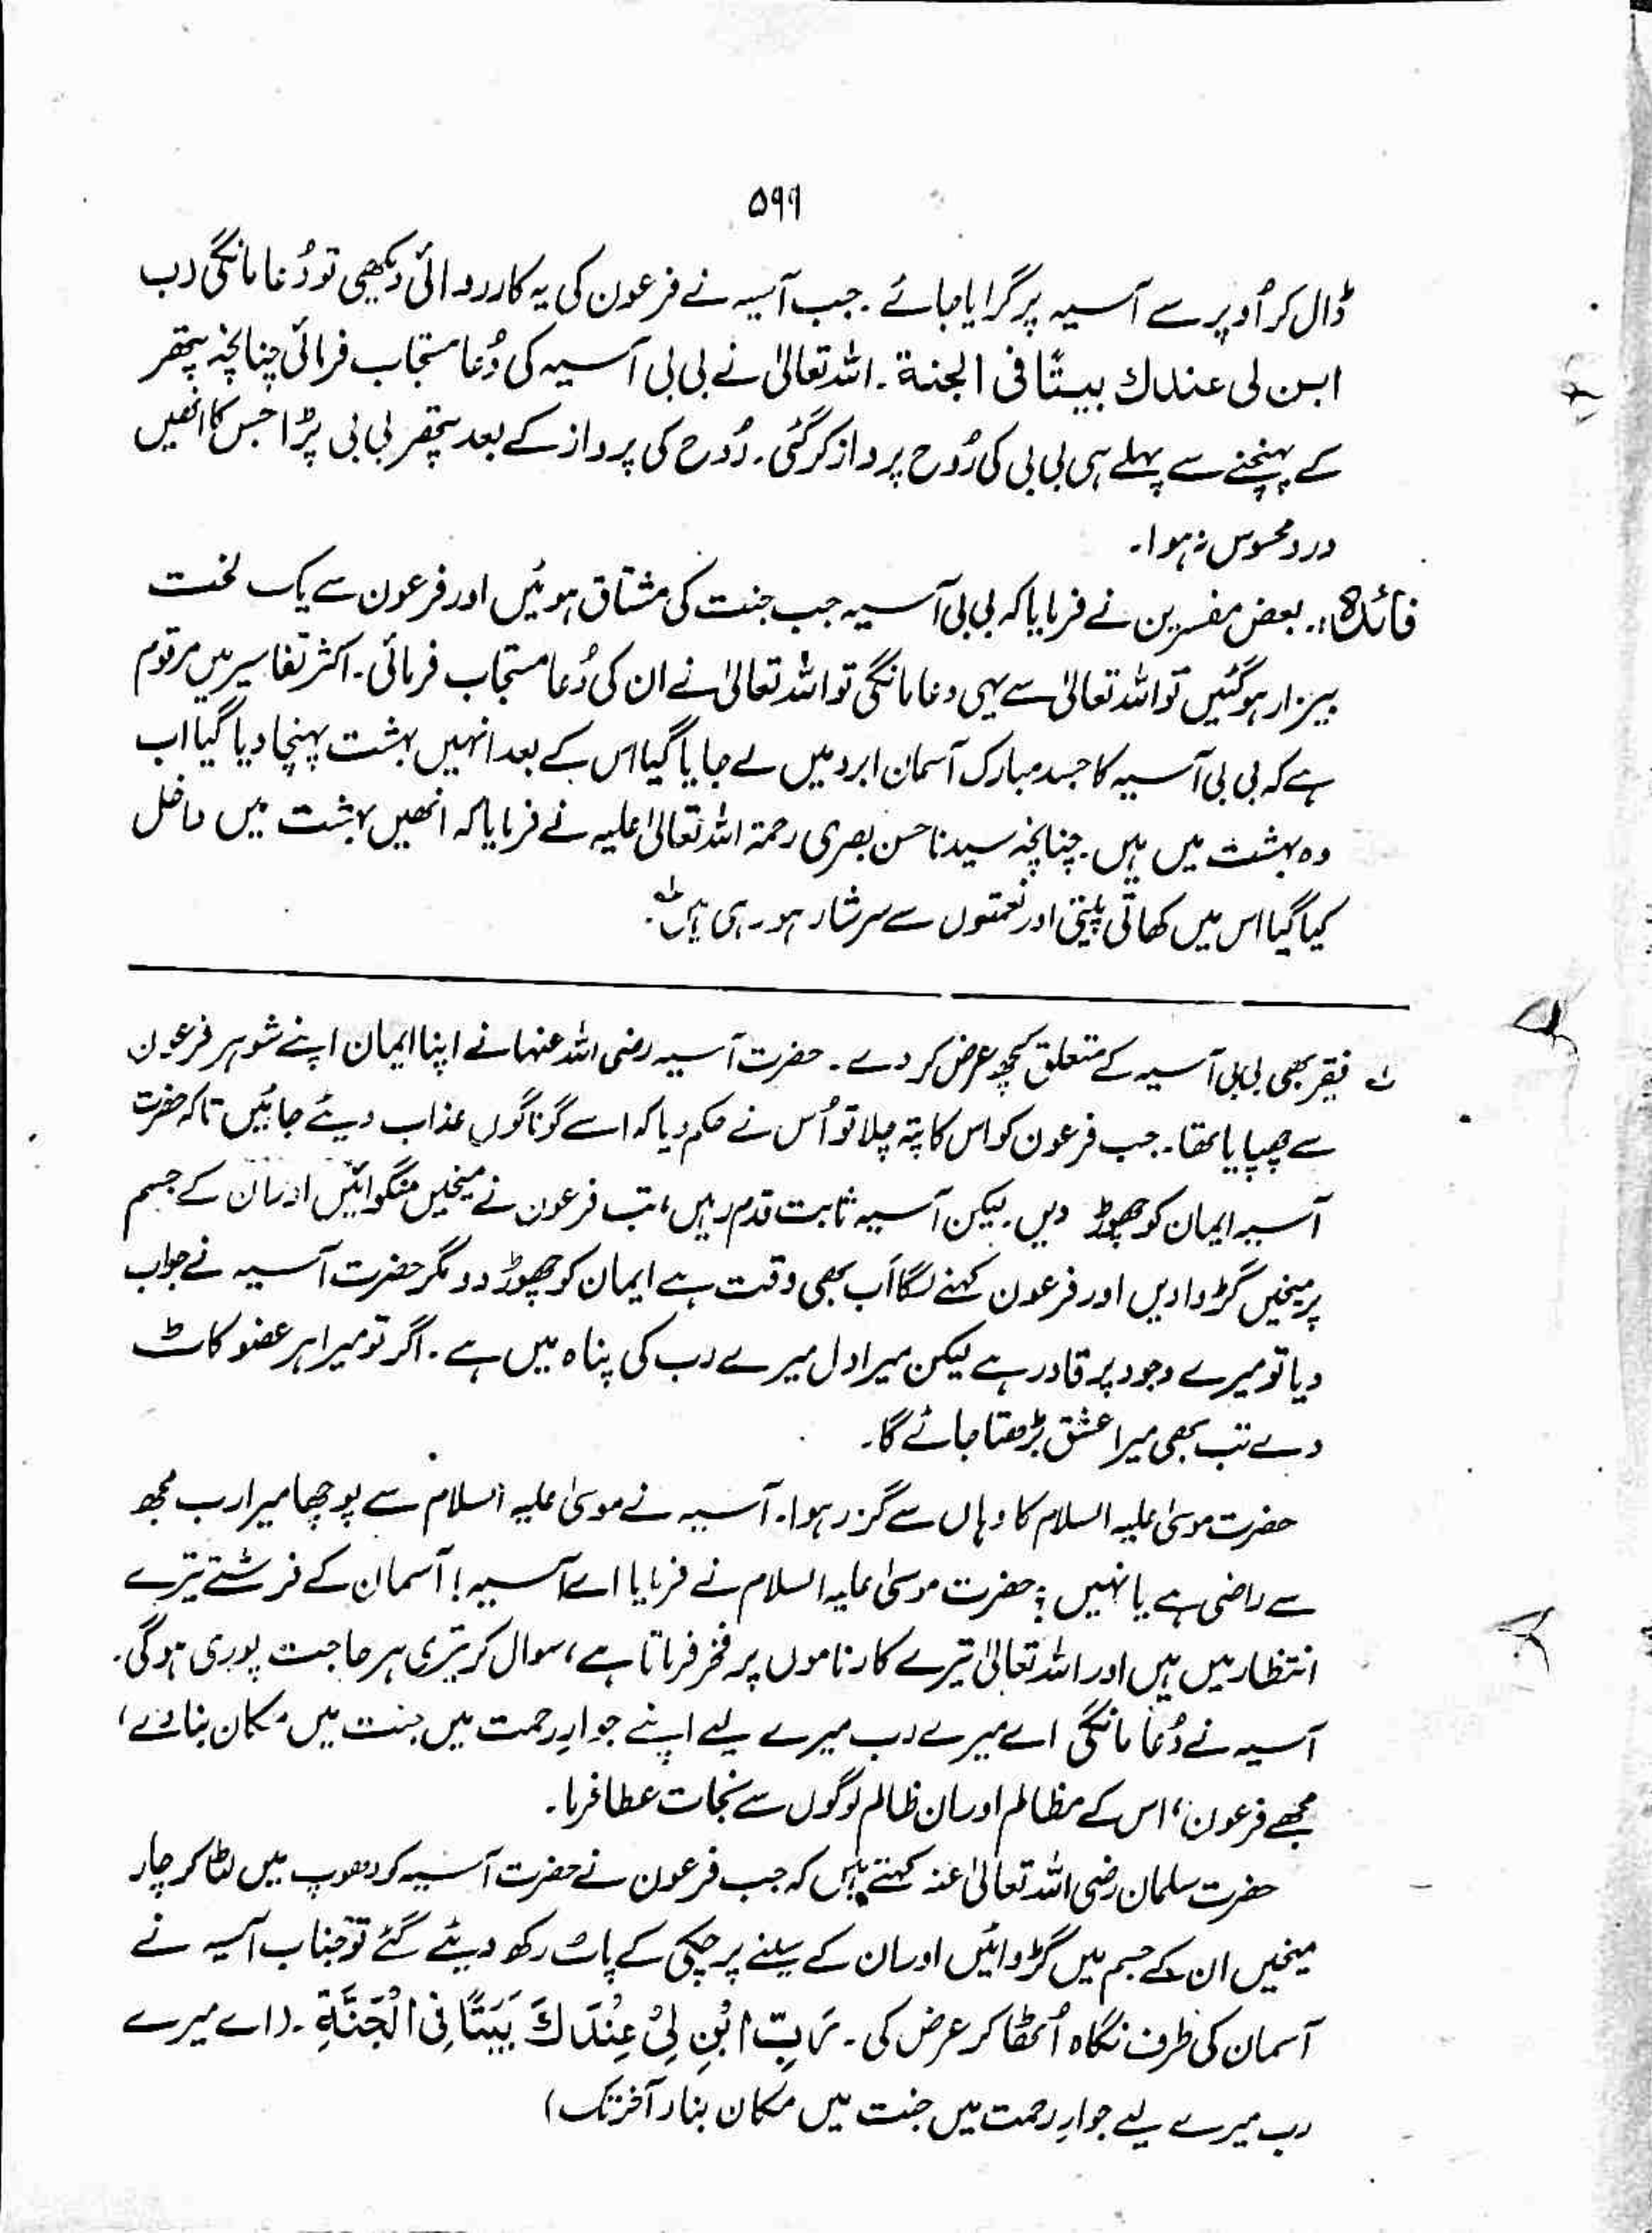 ۵۹۹
ڈال کر اُوپر سے آسیہ پر گرایا جائے۔ جب آسیہ نے فرعون کی یہ کارروائی دیکھی تو دُعا مانگی رب
ابن لی عندك بیتًا فی الجنة۔ اللہ تعالیٰ نے بی بی آسیہ کی دُعا مستجاب فرمائی چنانچہ پتھر
کے پہنچنے سے پہلے ہی بی بی کی رُوح پرواز کر گئی۔ رُوح کی پرواز کے بعد پتھر بی بی پڑا جس کا انھیں
درد محسوس نہ ہوا۔
فائدہ:۔ بعض مفسرین نے فرمایا کہ بی بی آسیہ جب جنت کی مشتاق ہوئیں اور فرعون سے یک لخت
بیزار ہو گئیں تو اللہ تعالیٰ سے یہی دعا مانگی تو اللہ تعالیٰ نے ان کی دُعا مستجاب فرمائی۔ اکثر تفاسیر میں مرقوم
ہے کہ بی بی آسیہ کا جسد مبارک آسمان ابرد میں لے جایا گیا اس کے بعد انہیں بہشت پہنچا دیا گیا اب
وہ بہشت میں ہیں۔ چنانچہ سیدنا حسن بصری رحمۃ اللہ تعالیٰ علیہ نے فرمایا کہ انھیں بہشت میں داخل
کیا گیا اس میں کھاتی پیتی اور نعمتوں سے سرشار ہو رہی ہیں لہ۔
لہ فقیر بھی بی بی آسیہ کے متعلق کچھ عرض کر دے۔ حضرت آسیہ رضی اللہ عنہا نے اپنا ایمان اپنے شوہر فرعون
سے چھپایا تھا۔ جب فرعون کو اس کا پتہ چلا تو اُس نے حکم دیا کہ اسے گوناگوں عذاب دیئے جائیں تاکہ حضرت
آسیہ ایمان کو چھوڑ دیں۔ لیکن آسیہ ثابت قدم رہیں، تب فرعون نے میخیں منگوائیں اور ان کے جسم
پر میخیں گڑوا دیں اور فرعون کہنے لگا اَب بھی وقت ہے ایمان کو چھوڑ دو مگر حضرت آسیہ نے جواب
دیا تو میرے وجود پر قادر ہے لیکن میرا دل میرے رب کی پناہ میں ہے۔ اگر تو میرا ہر عضو کاٹ
دے تب بھی میرا عشق بڑھتا جائے گا۔
حضرت موسیٰ علیہ السلام کا وہاں سے گزر ہوا۔ آسیہ نے موسیٰ علیہ السلام سے پوچھا میرا رب مجھ
سے راضی ہے یا نہیں؟ حضرت موسیٰ علیہ السلام نے فرمایا اے آسیہ! آسمان کے فرشتے تیرے
انتظار میں ہیں اور اللہ تعالیٰ تیرے کارناموں پر فخر فرماتا ہے، سوال کر تیری ہر حاجت پوری ہو گی۔
آسیہ نے دُعا مانگی اے میرے رب میرے لیے اپنے جوارِ رحمت میں جنت میں مکان بنا دے،
مجھے فرعون، اس کے مظالم اور ان ظالم لوگوں سے نجات عطا فرما۔
حضرت سلمان رضی اللہ تعالیٰ عنہ کہتے ہیں کہ جب فرعون نے حضرت آسیہ کو دھوپ میں لٹا کر چار
میخیں ان کے جسم میں گڑوائیں اور ان کے سینے پر چکی کے پاٹ رکھ دیئے گئے تو جناب آسیہ نے
آسمان کی طرف نگاہ اُٹھا کر عرض کی۔ رَبِّ ابْنِ لِیْ عِنْدَكَ بَیْتًا فِی الْجَنَّةِ۔ (اے میرے
رب میرے لیے جوارِ رحمت میں جنت میں مکان بنا۔ آخر تک)